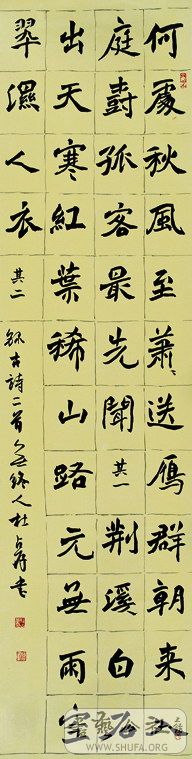 何處秋風至蕭〻送雁群朝来入
庭樹孤客最先聞 其一 荊溪白石
出天寒紅葉稀山路元無雨空
翠濕人衣 其二
錄古詩二首 人杜 書
WWW.SHUFA.ORG